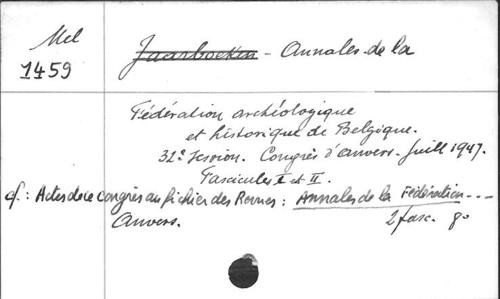 Mel
1459
Jaarboeken - Annales de la
Fédération archéologique
et historique de Belgique.
32e Session. Congrès d'Anvers. Juill 1947.
Fascicules I et II.
cf: Actes de ce congrès au fichier des Revues: Annales de la Fédération ---
Anvers. 2 fasc. 8o